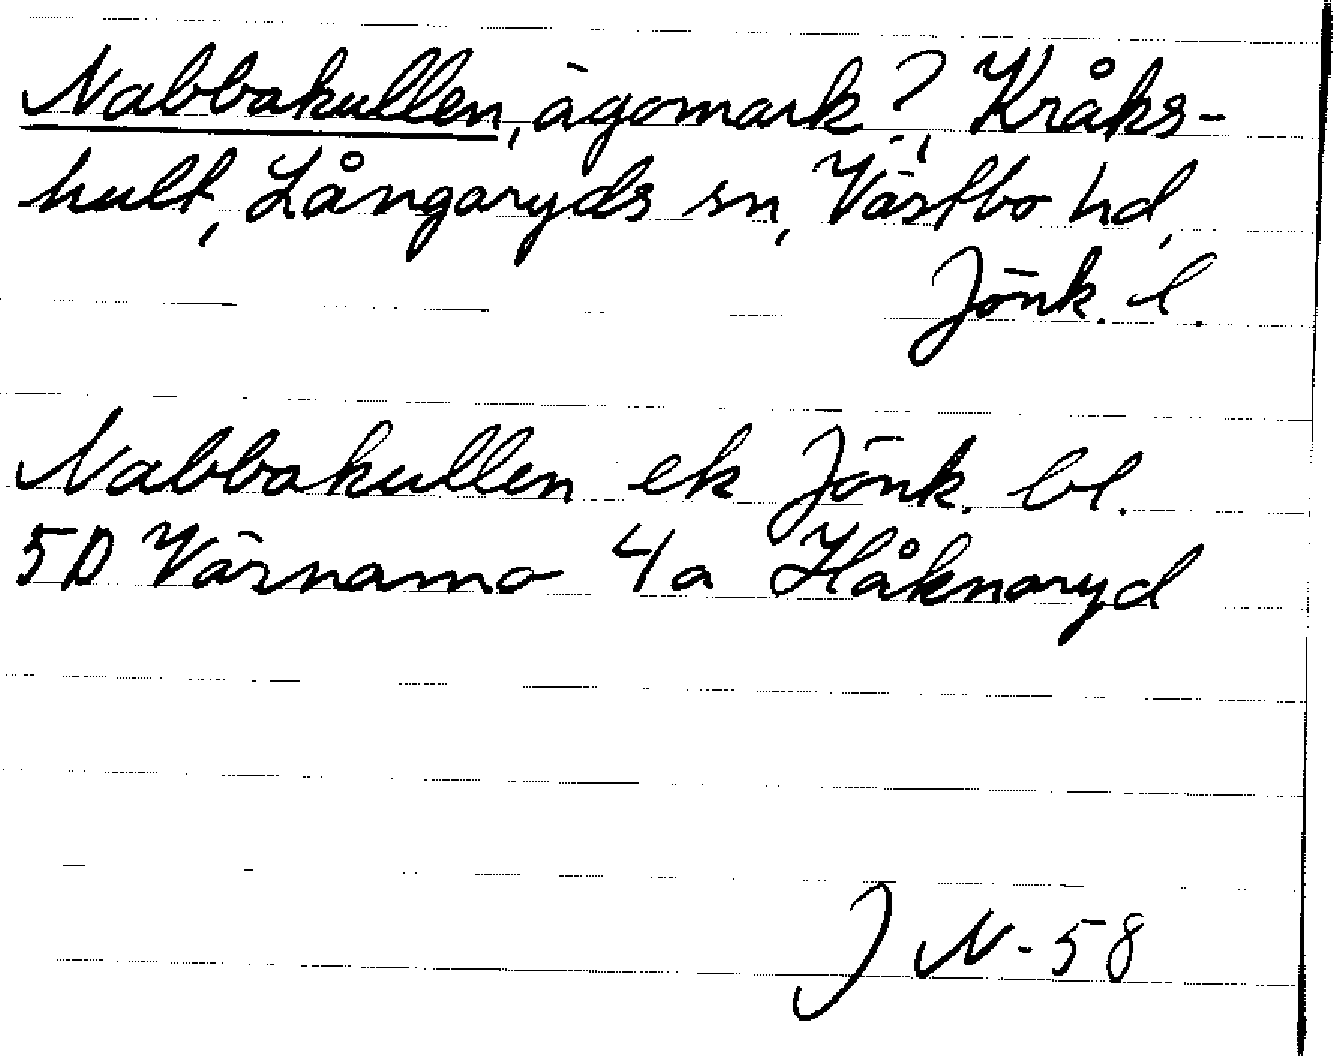 Nabbakullen, ägomark?, Kråks-
hult, Långaryds sn, Västbo hd,
Jönk. l.
Nabbakullen ek Jönk. bl.
5D Värnamo 4a Håknaryd
J N-58